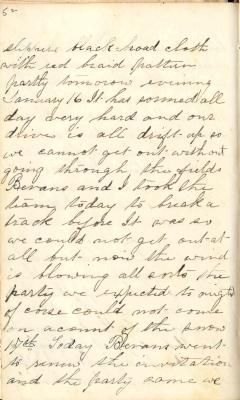 52
black broad cloth
with red braid pattern
partty tomorow evening
January 16 It has snowed all
day very hard and our
drive is all drift up so
we cannot get out without
going through the fields
Bevans and I took the
team today to break a
track before It was so
we could not get out at
all but now the wind
is blowing all sorts the
party we expected to night
of corse could not come
on acount of the snow
17th Today Bevans went
to renew the invitation
and the party came we